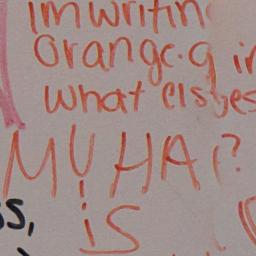 im writin
orange. g in
what els yes
MU HA ?
ss,
is